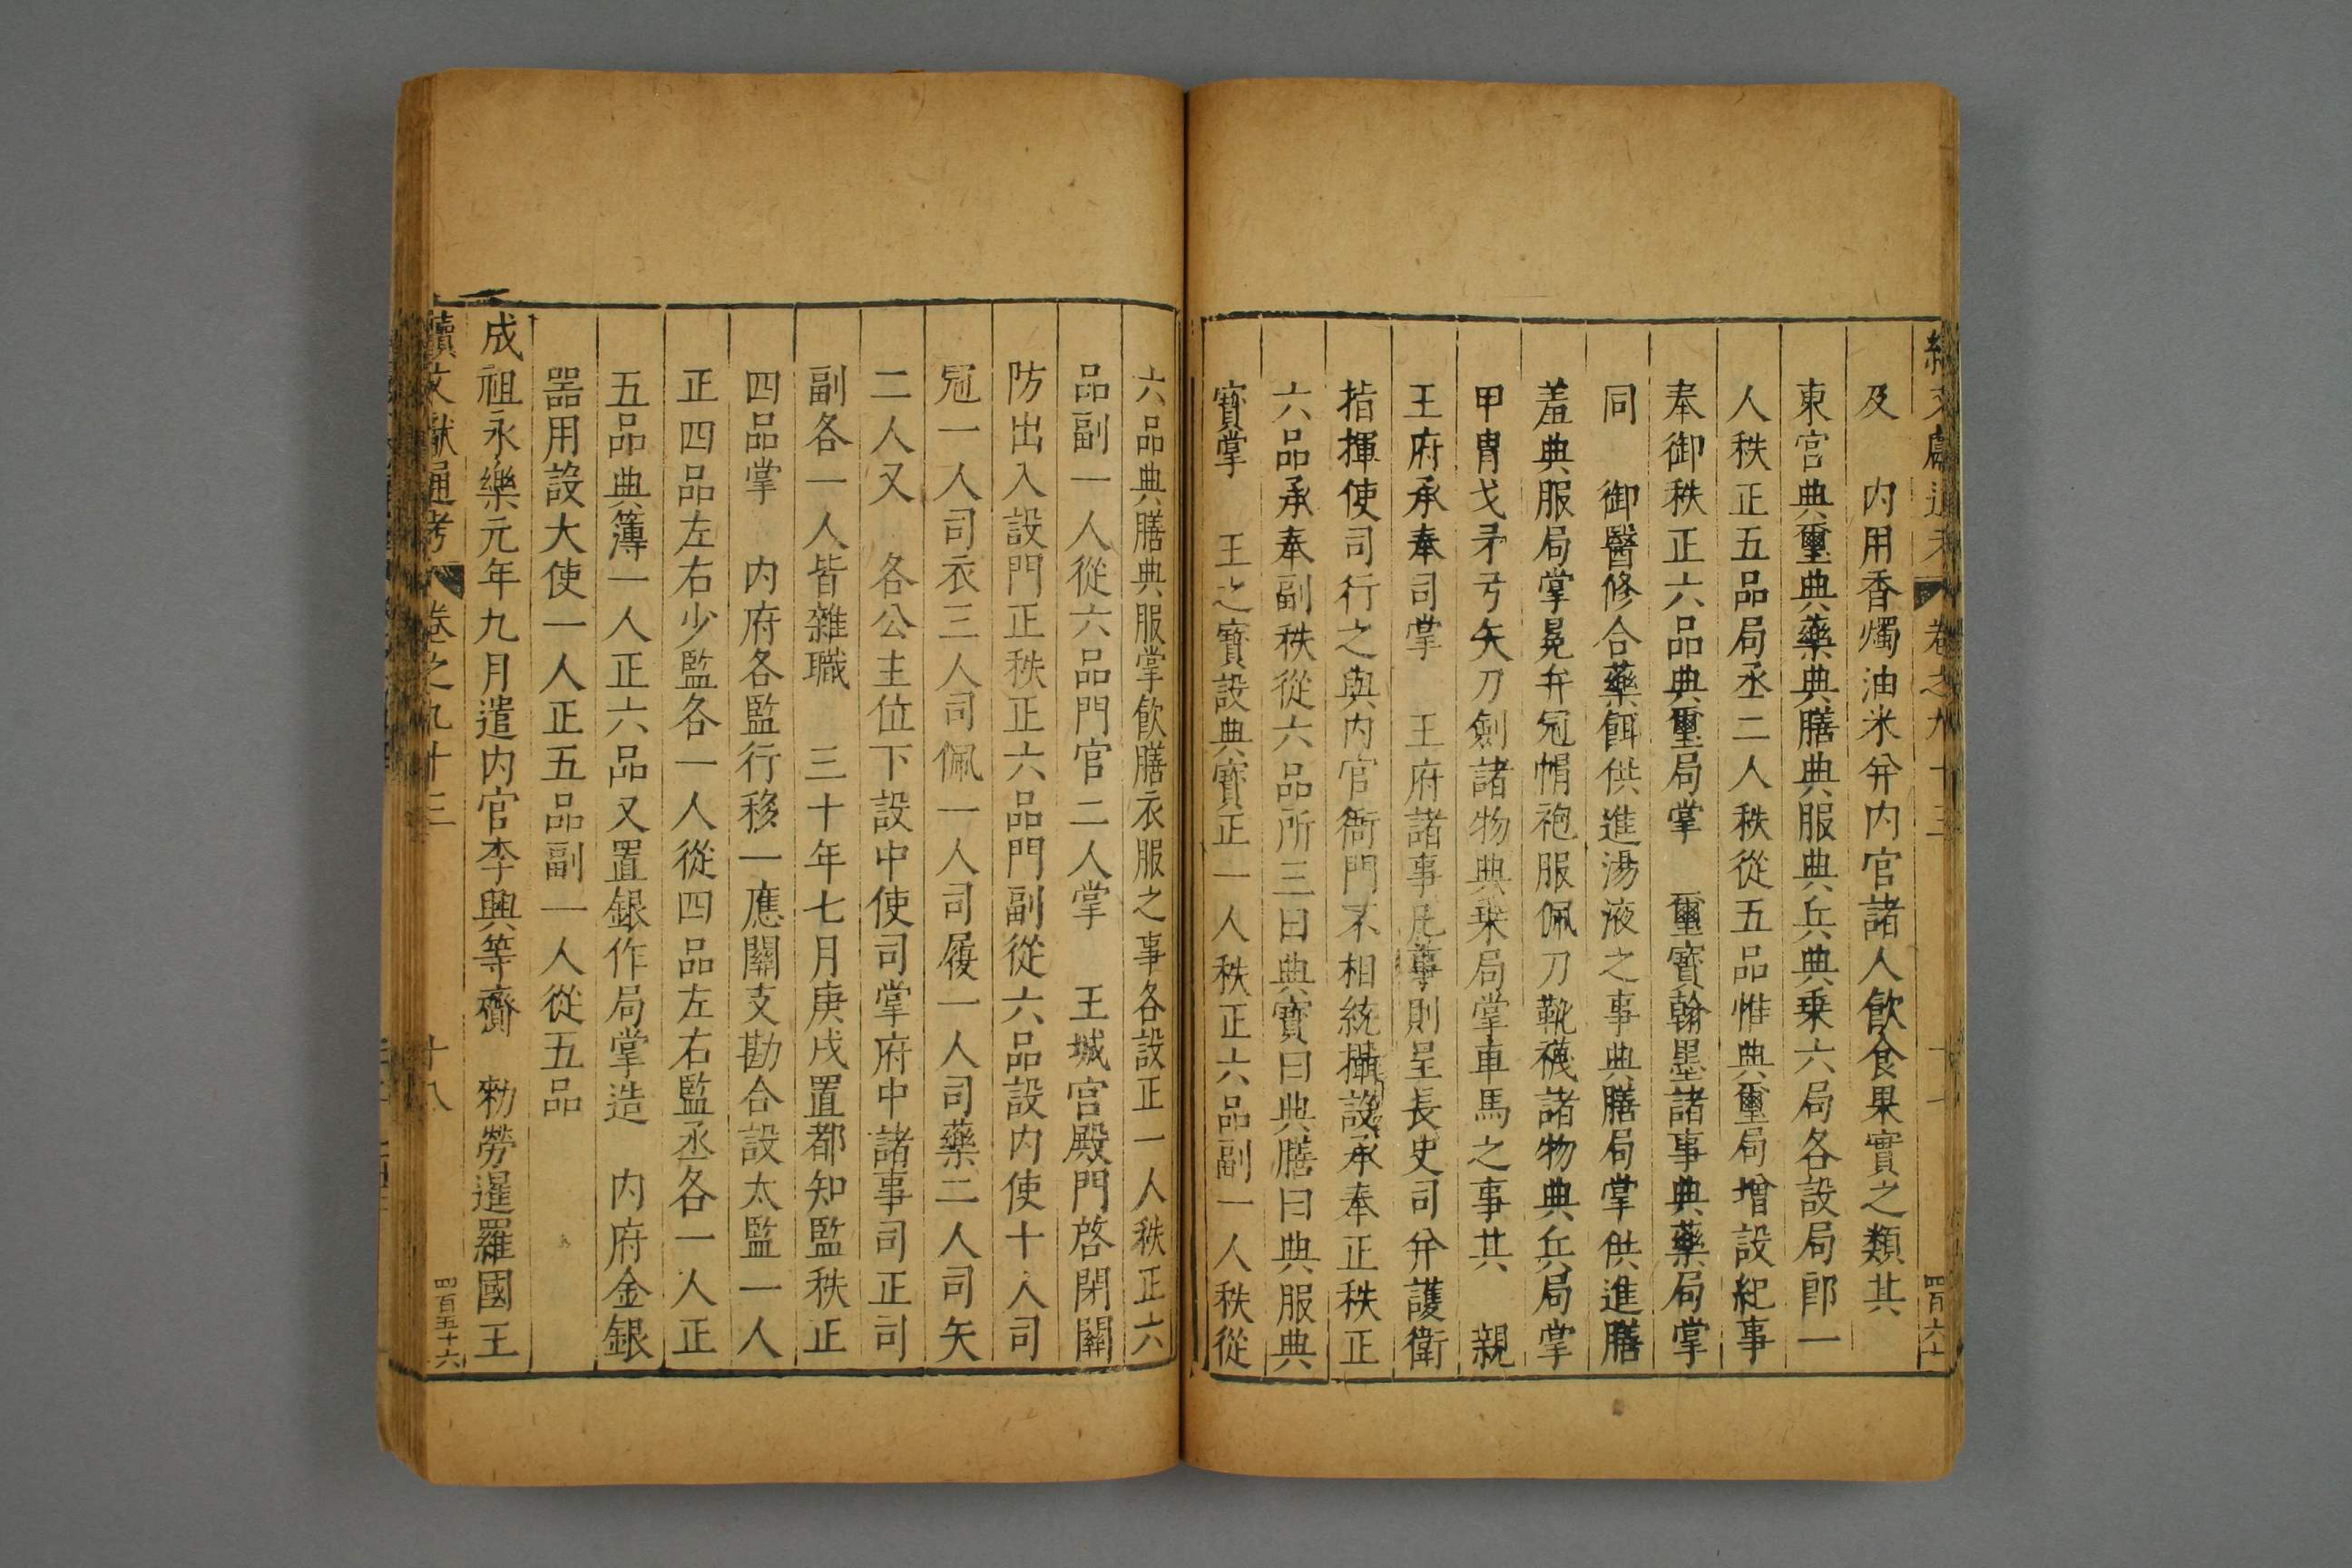 及　内用香燭油米并内官諸人飲食果實之類其
東宮典璽典藥典膳典服典兵典乘六局各設局郎一
人秩正五品局丞二人秩從五品惟典璽局增設紀事
奉御秩正六品典璽局掌　璽寶翰墨諸事典藥局掌
同　御醫修合藥餌供進湯液之事典膳局掌供進膳
羞典服局掌冕弁冠帽袍服佩刀靴襪諸物典兵局掌
甲冑戈矛弓矢刀劍諸物典乘局掌車馬之事其　親
王府承奉司掌　王府諸事凡事則呈長史司并護衛
指揮使司行之與内官衙門不相統攝設承奉正秩正
六品承奉副秩從六品所三曰典寶曰典膳曰典服典
寶掌　王之寶設典寶正一人秩正六品副一人秩從
六品典膳典服掌飲膳衣服之事各設正一人秩正六
品副一人從六品門官二人掌　王城宮殿門啓閉關
防出入設門正秩正六品門副從六品設内使十人司
冠一人司衣三人司佩一人司履一人司藥二人司矢
二人又　各公主位下設中使司掌府中諸事司正司
副各一人皆雜職　三十年七月庚戌置都知監秩正
四品掌　内府各監行移一應關支勘合設太監一人
正四品左右少監各一人從四品左右監丞各一人正
五品典簿一人正六品又置銀作局掌造　内府金銀
器用設大使一人正五品副一人從五品
成祖永樂元年九月遣内官李興等齎　勑勞暹羅國王
續文獻通考　卷之九十三　十八　四百五十六